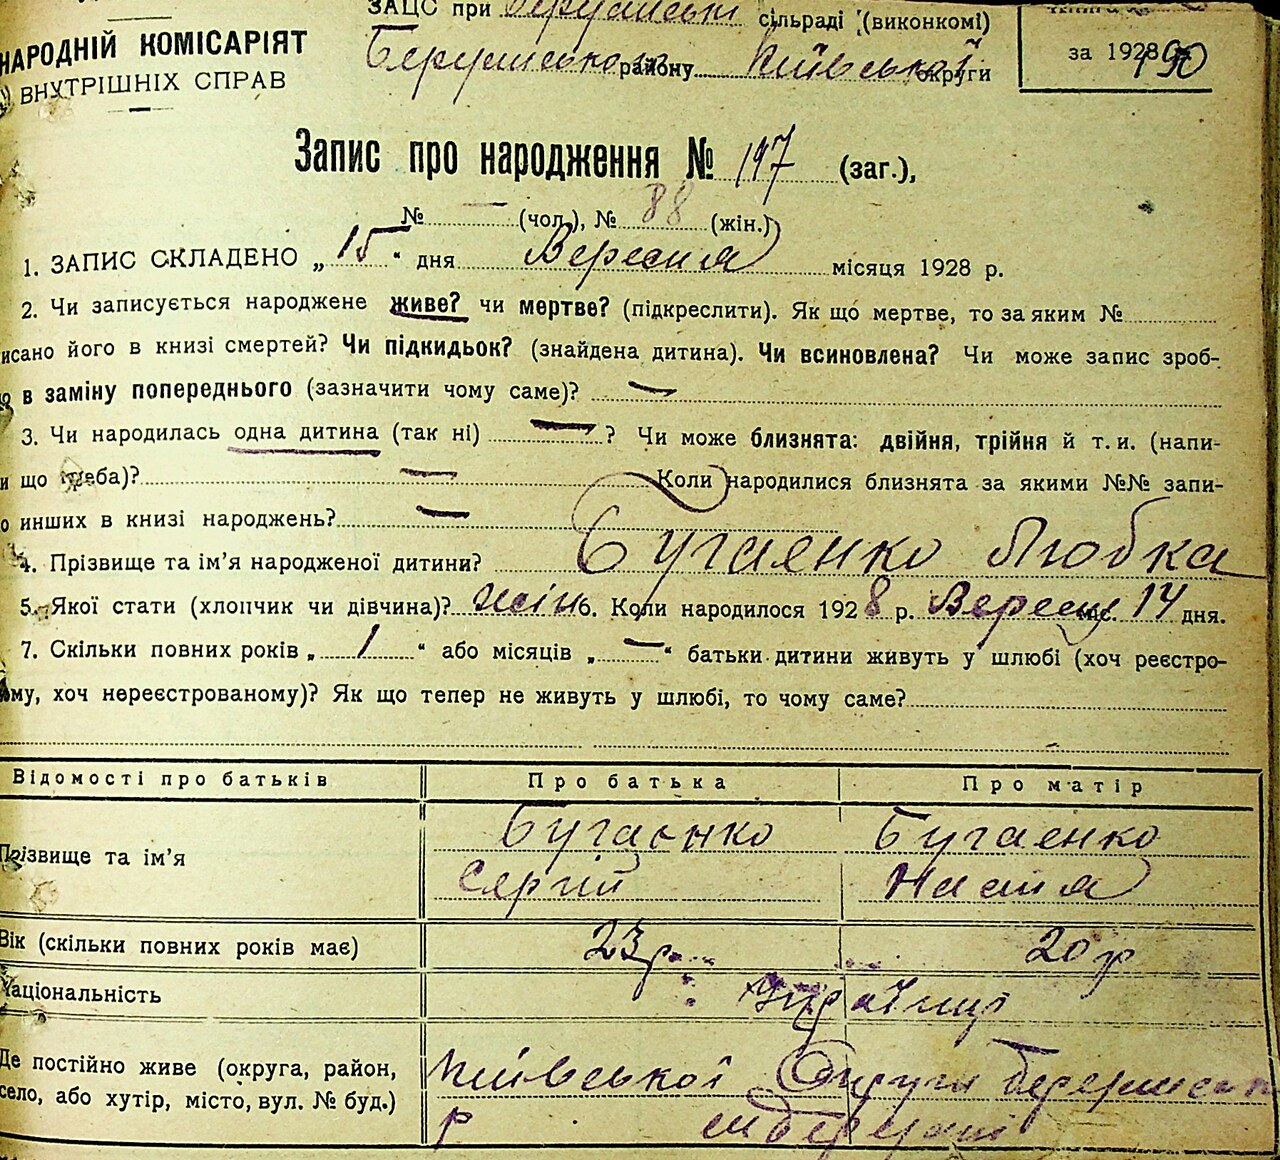 ЗАЦС при сільраді (виконкомі)
НАРОДНІЙ КОМІСАРІЯТ
району Київської округи
за 1928
ВНУТРІШНІХ СПРАВ
Запис про народження № 197 (заг.),
№ — (чол.), № 88 (жін.)
1. ЗАПИС СКЛАДЕНО „ 15 “ дня Вересня місяця 1928 р.
2. Чи записується народжене живе? чи мертве? (підкреслити). Як що мертве, то за яким №
исано його в книзі смертей? Чи підкидьок? (знайдена дитина). Чи всиновлена? Чи може запис зроб-
в заміну попереднього (зазначити чому саме)? —
3. Чи народилась одна дитина (так ні) — ? Чи може близнята: двійня, трійня й т. и. (напи-
и що треба)? — Коли народилися близнята за якими №№ запи-
о инших в книзі народжень? —
4. Прізвище та ім’я народженої дитини? Бугаєнко Любка
5. Якої стати (хлопчик чи дівчина)? жін 6. Коли народилося 1928 р. Вересня міс. 14 дня.
7. Скільки повних років „ 1 “ або місяців „ — “ батьки дитини живуть у шлюбі (хоч реєстро-
ому, хоч нереєстрованому)? Як що тепер не живуть у шлюбі, то чому саме?
Відомості про батьків Про батька Про матір
Прізвище та ім’я Бугаєнко Бугаєнко
Сергій Настя
Вік (скільки повних років має) 23 р. 20 р
Національність Українці
Де постійно живе (округа, район, Київської Округи
село, або хутір, місто, вул. № буд.) р